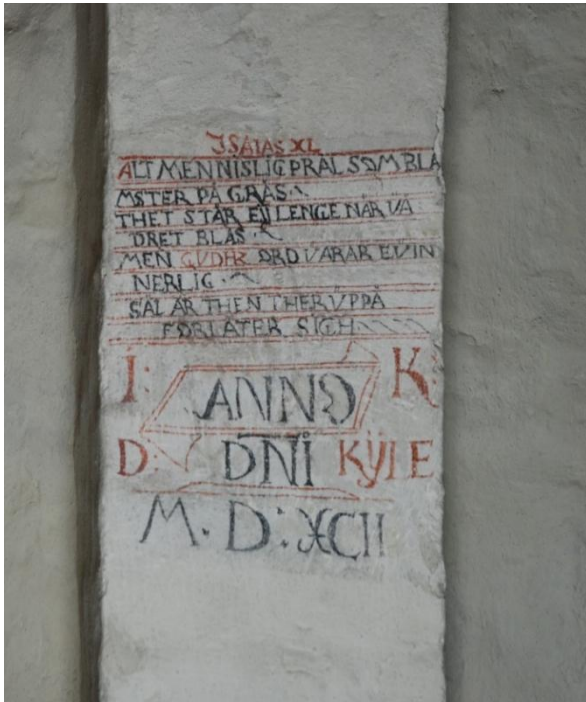 JSAIAS XL
ALT MENNISLIG PRÅL SOM BLA
MSTER PÅ GRÄS
THET STÅR EIJ LENGE NÄR VÄ
DRET BLÄS
MEN GUDHZ ORD VARAR EVIN
NERLIG
SÄL ÄR THEN THER UPPÅ
FÖRLÅTER SIGH
I: K:
ANNO
D: DNI KŸLE
M. D: XCII